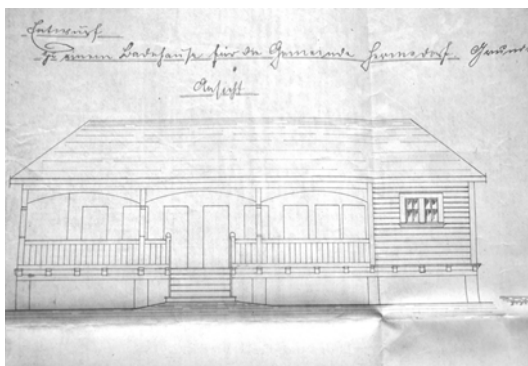 Entwurf
zu einem Badehause für die Gemeinde Hermsdorf
Ansicht